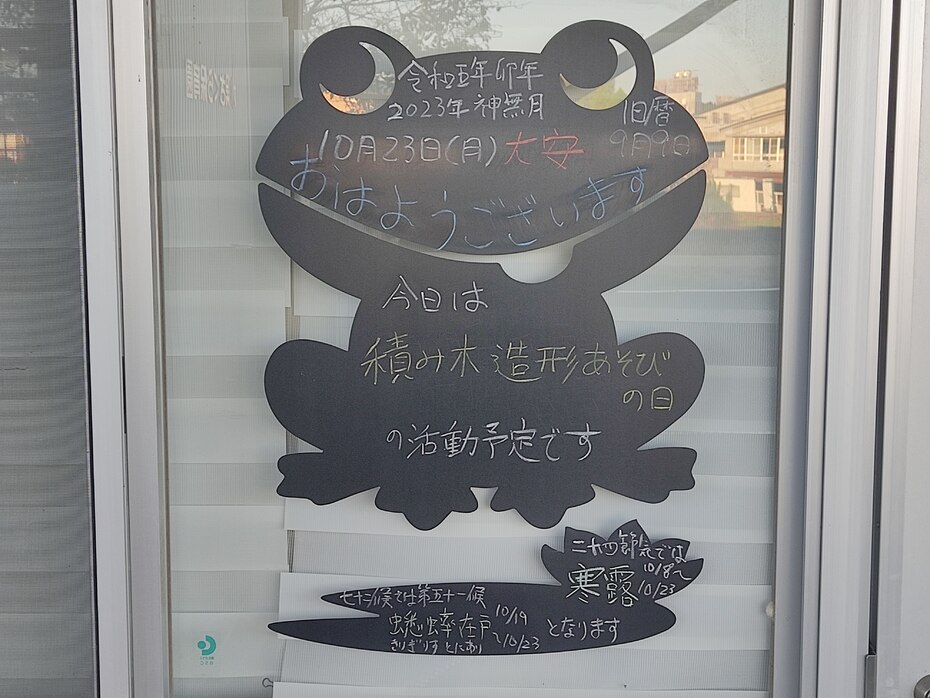 令和五年卯年
2023年神無月
旧暦
10月23日(月)大安
9月9日
おはようございます
今日は
積み木造形あそび
の日
の活動予定です
二十四節気では
寒露
10/8〜
10/23
七十二候では第五十一候
蟋蟀在戸
きりぎりすとにあり
10/19
〜10/23
となります